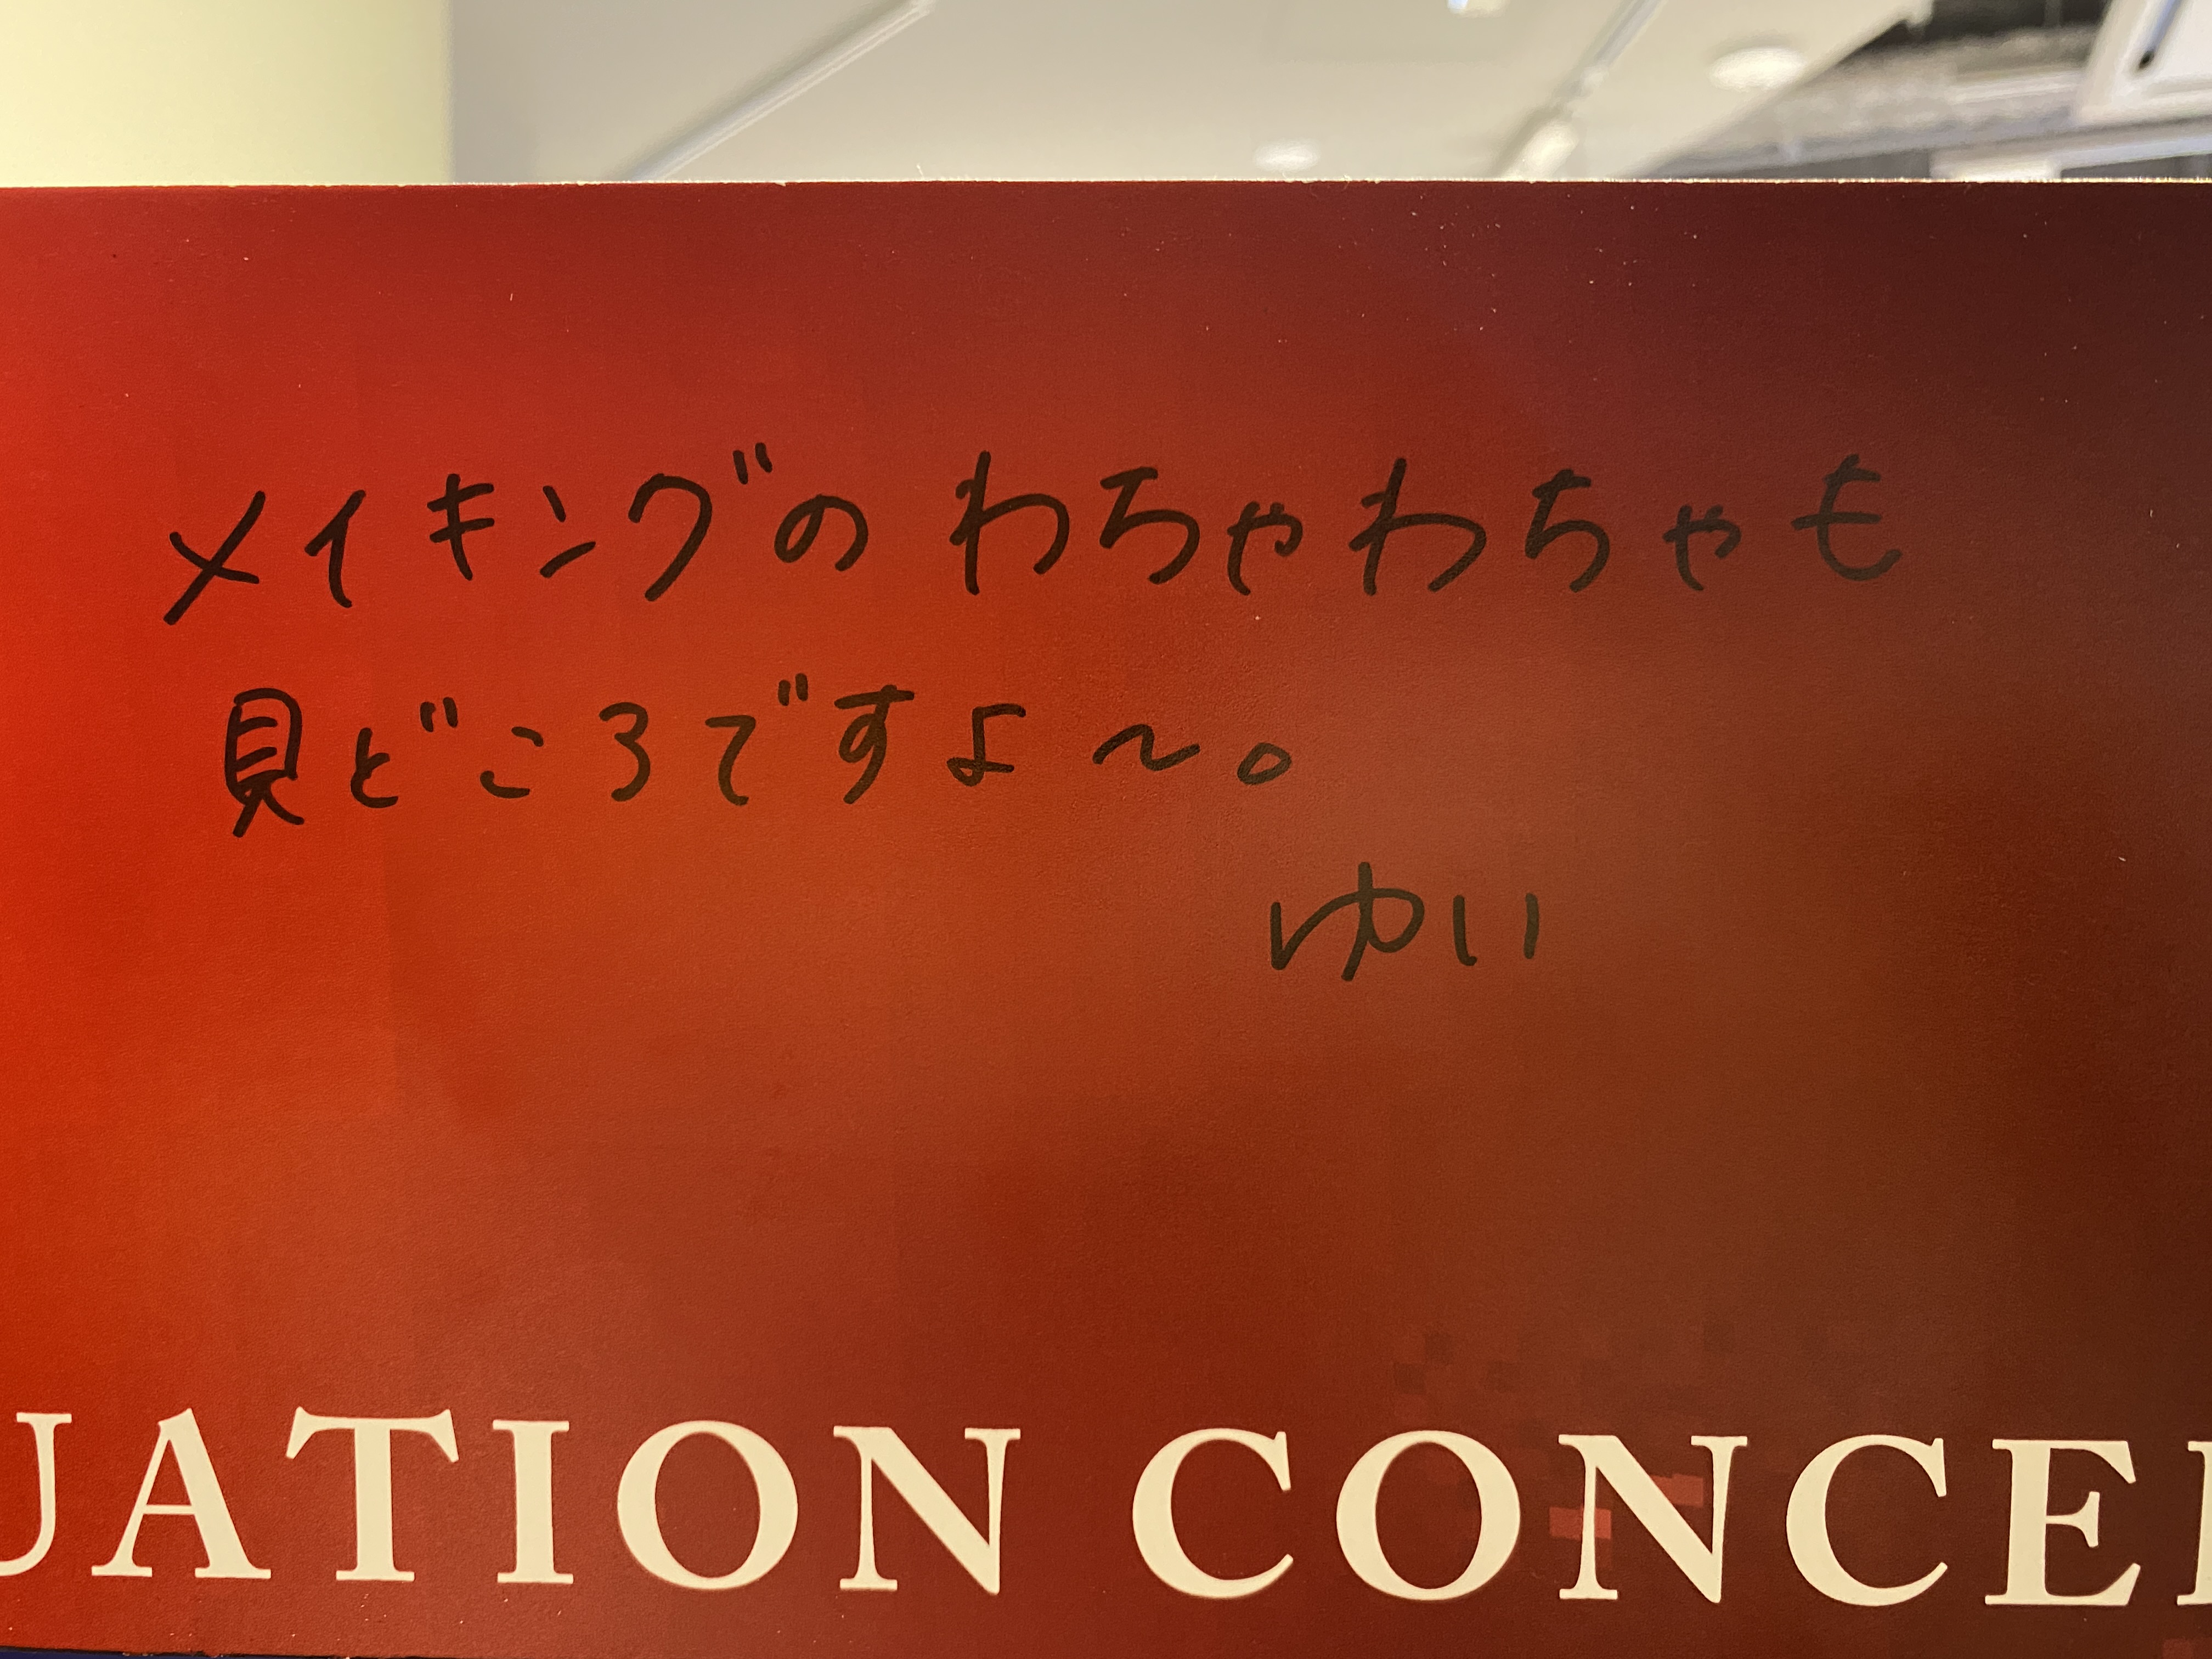 メイキングのわちゃわちゃも
見どころですよ〜。
ゆい
UATION CONCE